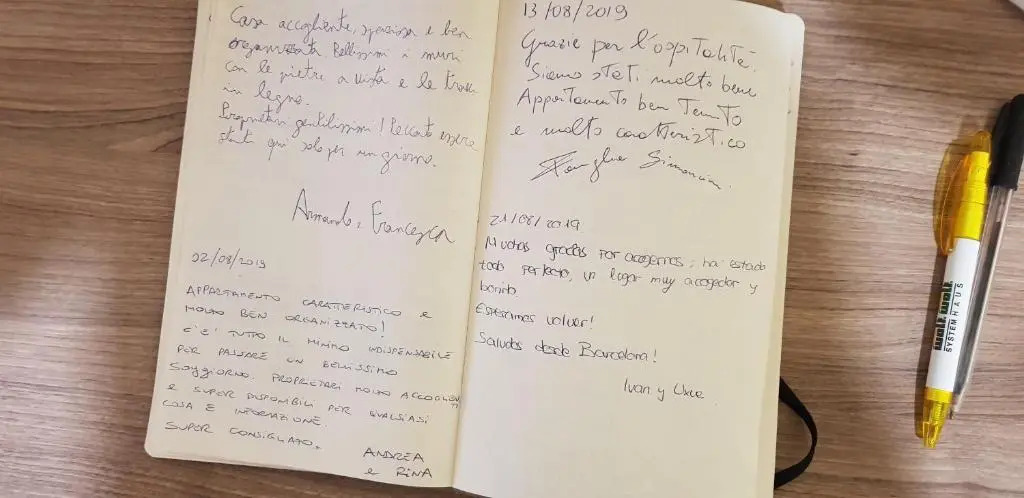 Casa accogliente, spaziosa e ben
organizzata. Bellissimi i muri
con le pietre a vista e le travi
in legno.
Proprietari gentilissimi! Peccato essere
stati qui solo per un giorno.
Armando e Francesca
02/08/2019
APPARTAMENTO CARATTERISTICO E
MOLTO BEN ORGANIZZATO!
C'E' TUTTO IL MINIMO INDISPENSABILE
PER PASSARE UN BELLISSIMO
SOGGIORNO. PROPRIETARI MOLTO ACCOGLIENTI
E SUPER DISPONIBILI PER QUALSIASI
COSA E INFORMAZIONE.
SUPER CONSIGLIATO.
ANDREA
e RINA
13/08/2019
Grazie per l'ospitalità.
Siamo stati molto bene
Appartamento ben tenuto
e molto caratteristico
Famiglia
21/08/2019
Muchas gracias por acogernos; ha estado
todo perfecto, un lugar muy acogedor y
bonito.
Esperamos volver!
Saludos desde Barcelona!
Ivan y
wolf.wolf
SYSTEMHAUS